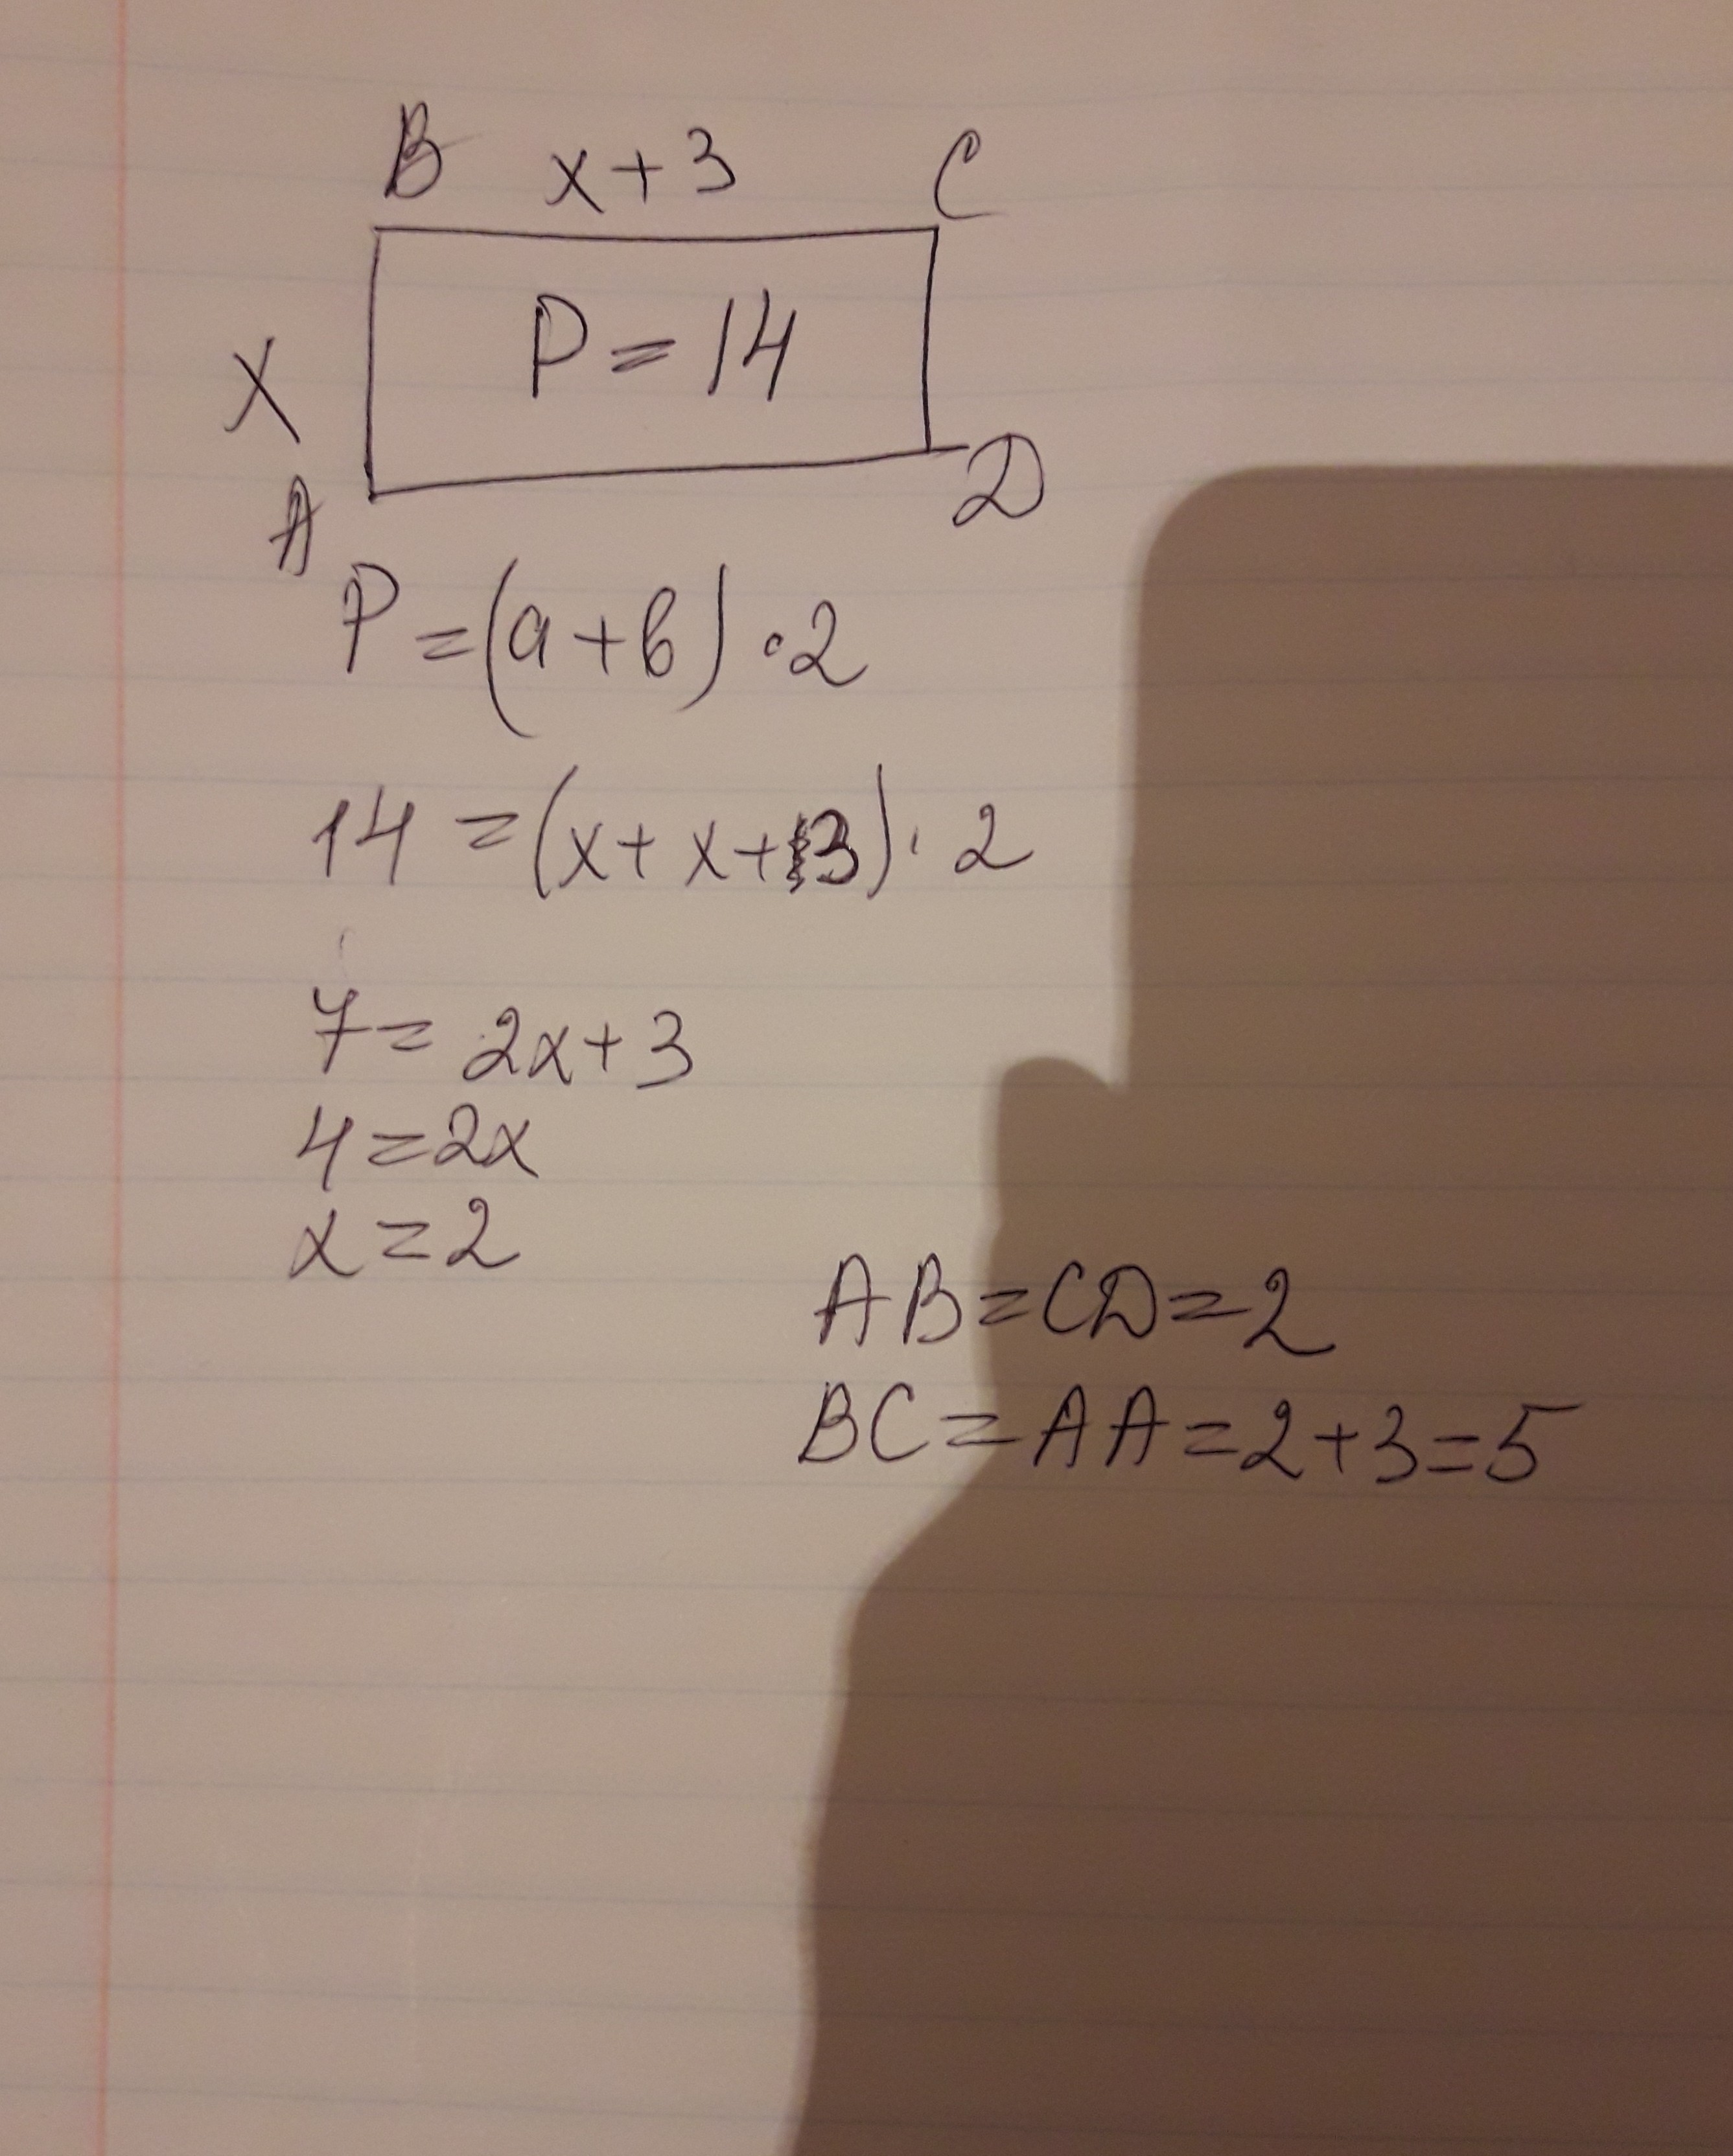 B x+3 C
P=14
X
D
A
P=(a+b)·2
14=(x+x+3)·2
7=2x+3
4=2x
x=2
AB=CD=2
BC=AA=2+3=5